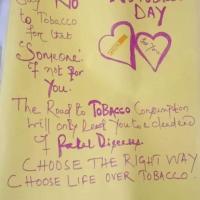 Say NO
to Tobacco
for that
"Someone"
if not for
You.
TOBACCO
DAY
The Road to TOBACCO Consumption
will only lead You to a dead end
of Fatal Disease
CHOOSE THE RIGHT WAY
CHOOSE LIFE OVER TOBACCO